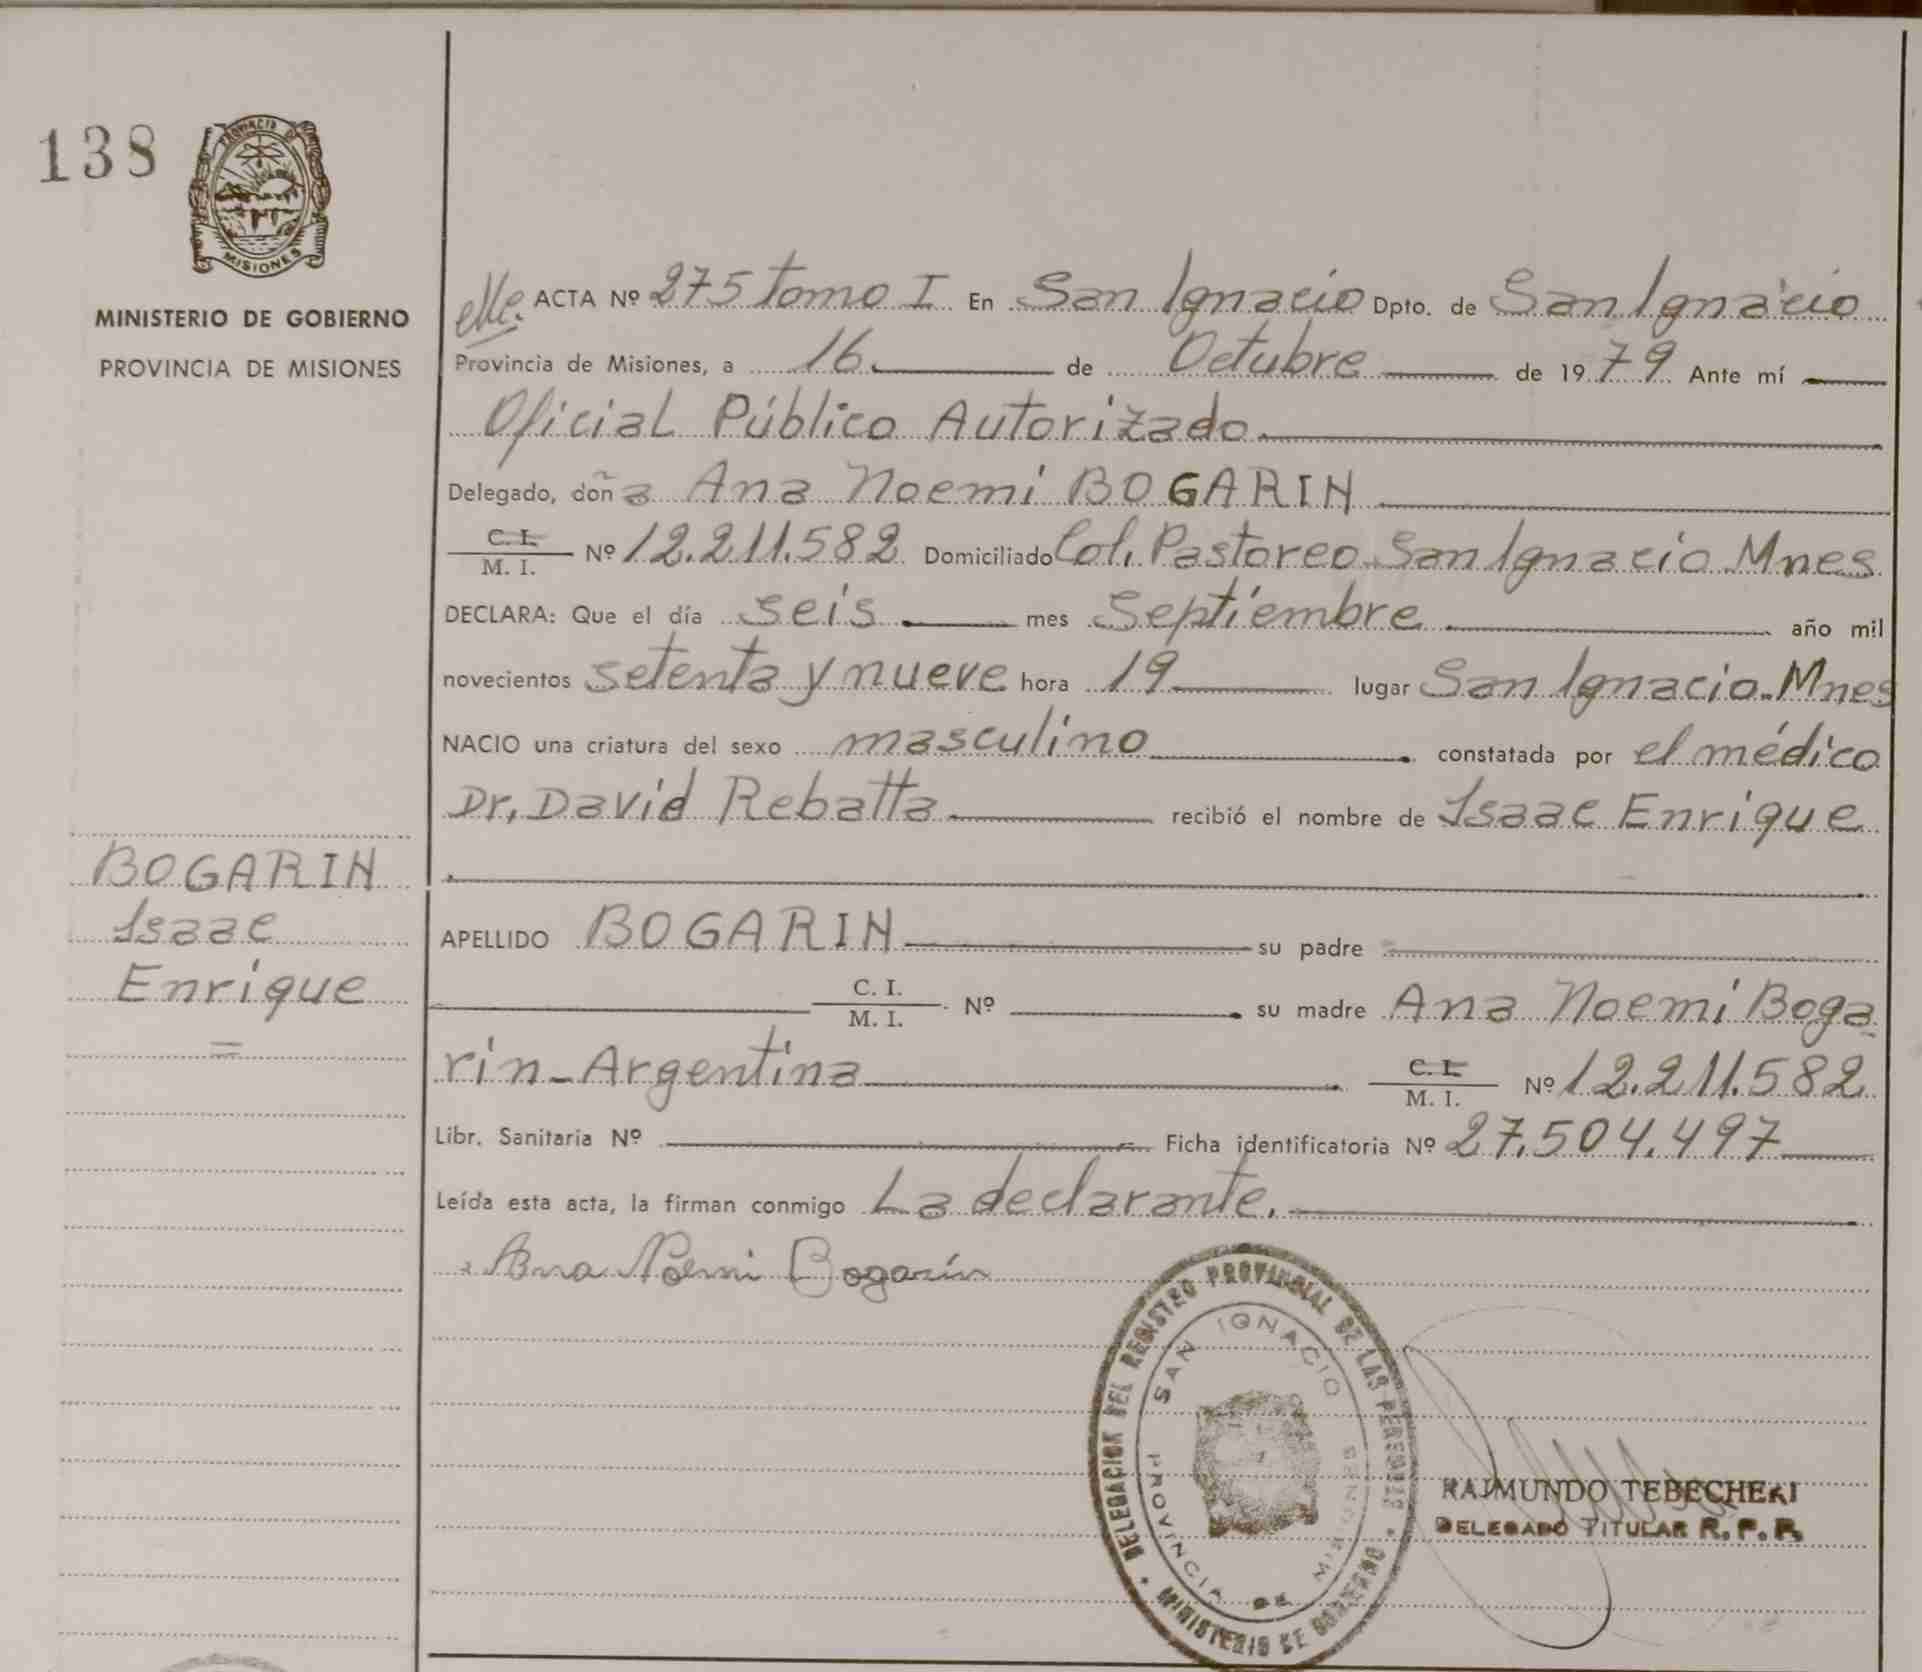 138
PROVINCIA DE
MISIONES
MINISTERIO DE GOBIERNO
PROVINCIA DE MISIONES
BOGARIN
Isaac
Enrique
=
ACTA Nº 275 Tomo I En San Ignacio Dpto. de San Ignacio
Provincia de Misiones, a 16 de Octubre de 1979 Ante mí
Oficial Público Autorizado.
Delegado, doña Ana Noemi BOGARIN
C. I. / M. I. Nº 12.211.582 Domiciliado Col. Pastoreo San Ignacio Mnes
DECLARA: Que el día seis mes Septiembre año mil
novecientos setenta y nueve hora 19 lugar San Ignacio-Mnes
NACIO una criatura del sexo masculino constatada por el médico
Dr. David Rebatta recibió el nombre de Isaac Enrique
APELLIDO BOGARIN su padre
C. I. / M. I. Nº su madre Ana Noemi Boga
rin-Argentina C. I. / M. I. Nº 12.211.582
Libr. Sanitaria Nº Ficha identificatoria Nº 27.504.497
Leída esta acta, la firman conmigo La declarante.
Ana Noemi Bogarín
DELEGACION DEL REGISTRO PROVINCIAL DE LAS PERSONAS
MINISTERIO DE GOBIERNO
SAN IGNACIO
PROVINCIA DE MISIONES
RAIMUNDO TEBECHERI
DELEGADO TITULAR R. P. P.